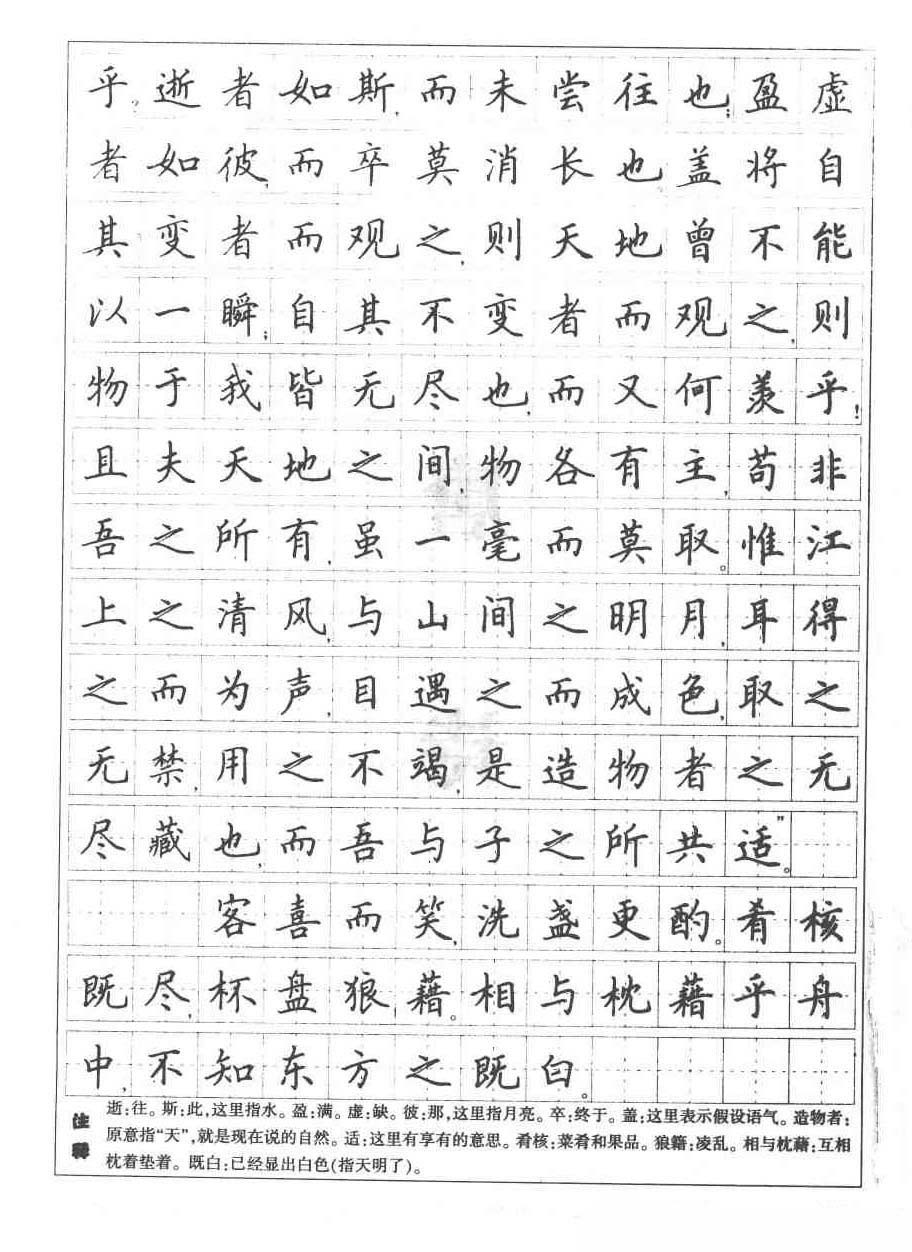 乎，逝者如斯，而未尝往也；盈虚
者如彼，而卒莫消长也。盖将自
其变者而观之，则天地曾不能
以一瞬；自其不变者而观之，则
物于我皆无尽也，而又何羡乎！
且夫天地之间，物各有主，苟非
吾之所有，虽一毫而莫取。惟江
上之清风，与山间之明月，耳得
之而为声，目遇之而成色，取之
无禁，用之不竭，是造物者之无
尽藏也，而吾与子之所共适。”
客喜而笑，洗盏更酌。肴核
既尽，杯盘狼藉。相与枕藉乎舟
中，不知东方之既白。
注释
逝：往。斯：此，这里指水。盈：满。虚：缺。彼：那，这里指月亮。卒：终于。盖：这里表示假设语气。造物者：
原意指“天”，就是现在说的自然。适：这里有享有的意思。肴核：菜肴和果品。狼籍：凌乱。相与枕藉：互相
枕着垫着。既白：已经显出白色（指天明了）。